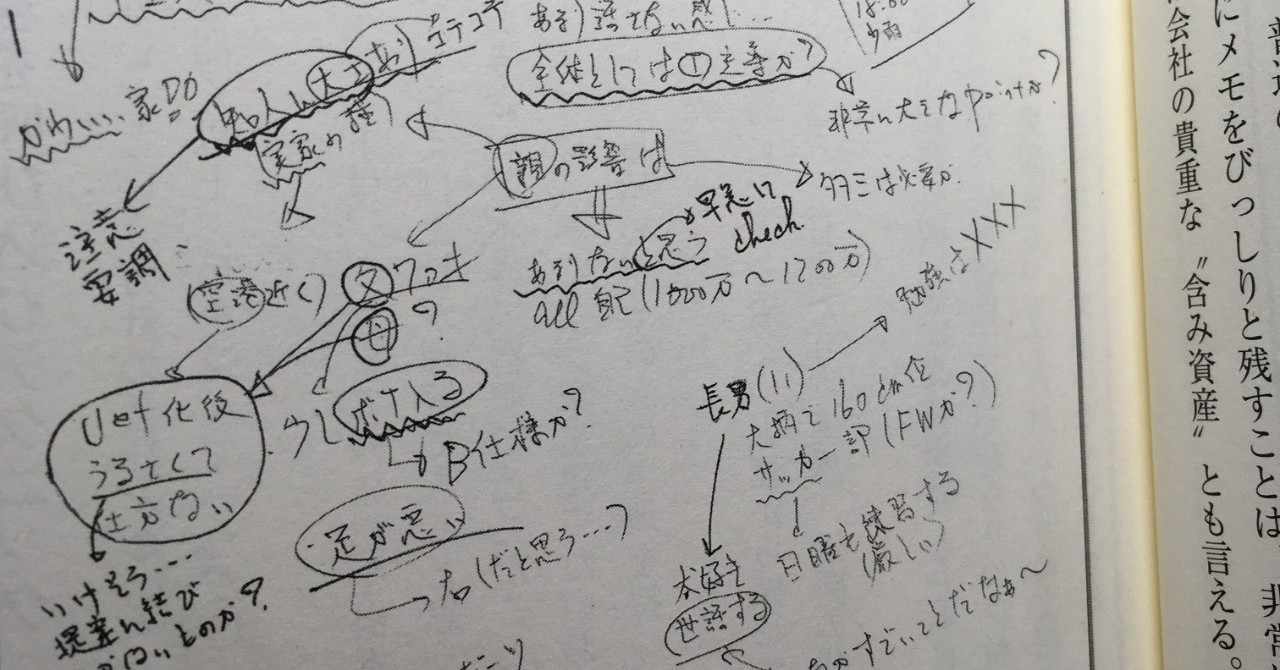 あまり話せない感じ…
全体としては㊤主導か?
18:00
かわいい家DO
知人に大工あり
(実家の種)
非常に大きなpointか?
親の影響は
タタミは必要か
早急に
check
注意
要調
あまりないと思う
all 自己(1000万〜1200万)
(空港近く)
父 ワコキ
母 ?
勉強は×××
Jet化後
うるさくて
仕方ない
少しボケ入る
B仕様か?
長男(11)
大柄で160cm位
サッカー部(FWか?)
日曜も練習する
(厳しい)
足が悪い
右(だと思う…?)
犬好き
世話する
いけそう…
提案に結び
がすごいことだなぁ〜
にメモをびっしりと残すことは、非常
会社の貴重な〝含み資産〟とも言える。